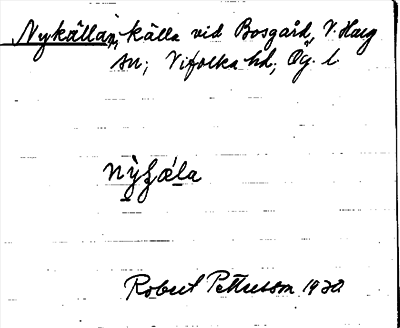 Nykällan, källa vid Bosgård, V. Harg
sn; Vifolka hd, Ög. l
nỳʒǽla
Robert Pettersson 1930